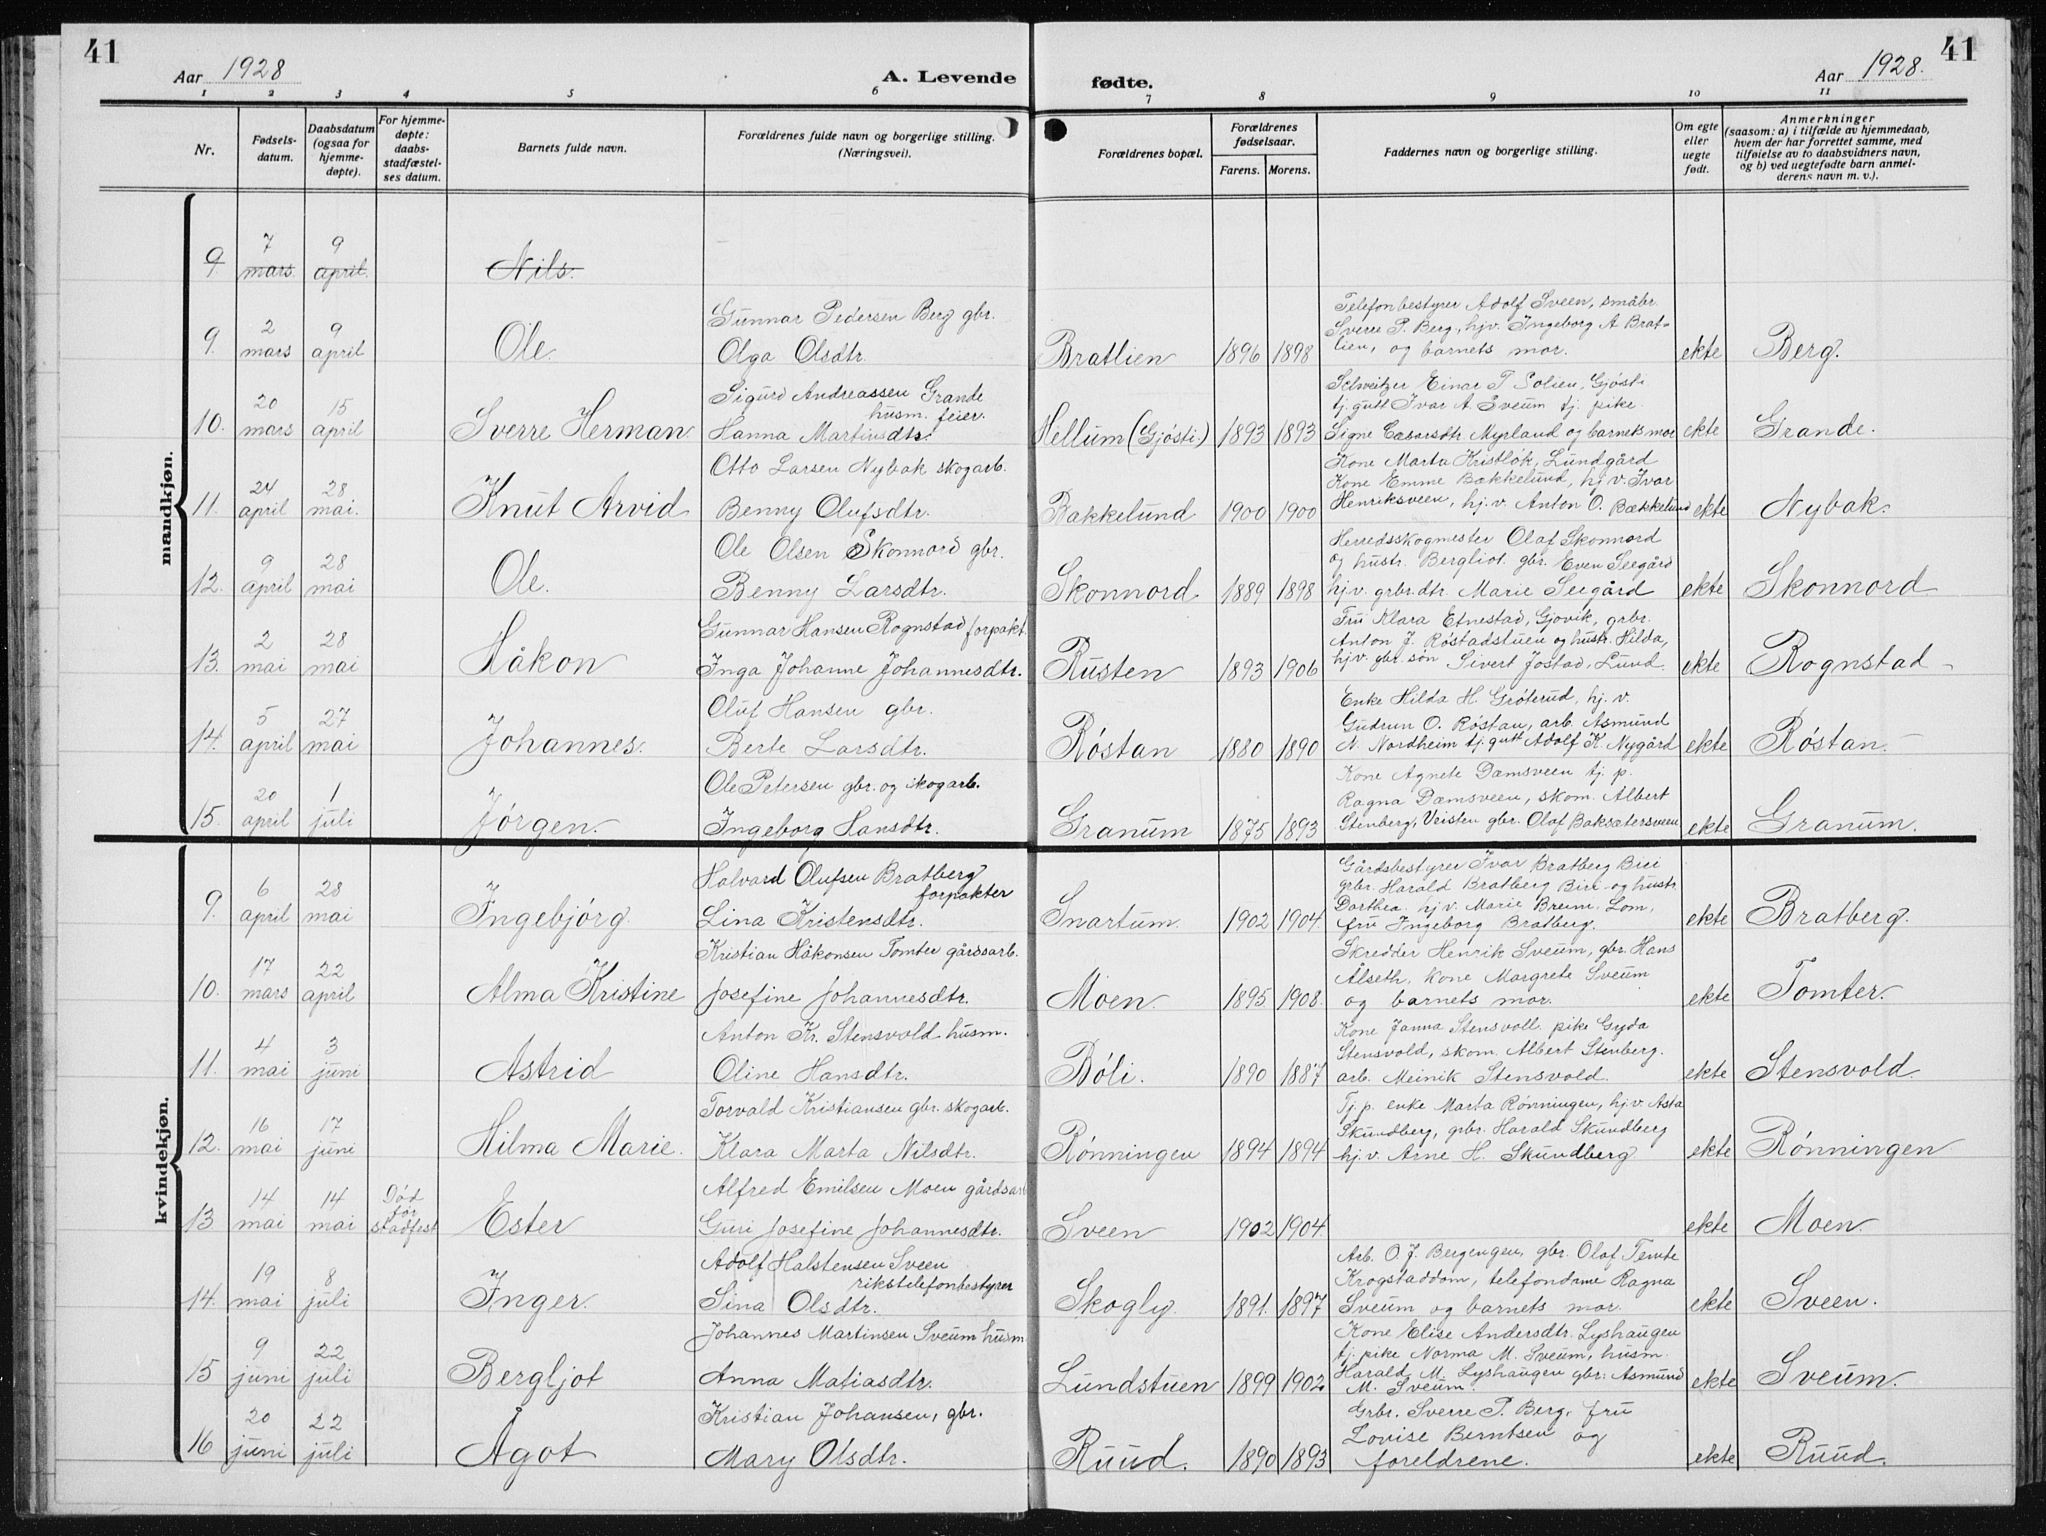 41
Aar 1928
A. Levende
1 2 3 4 5 6
Nr.
Fødsels-
datum.
Daabsdatum
(ogsaa for
hjemme-
døpte).
For hjemme-
døpte:
daabs-
stadfæstel-
ses datum.
Barnets fulde navn.
Forældrenes fulde navn og borgerlige stilling.
(Næringsvei).
41
Aar 1928.
fødte.
7 8 9 10 11
Forældrenes bopæl.
Forældrenes
fødselsaar.
Farens. Morens.
Faddernes navn og borgerlige stilling.
Om egte
eller
uegte
født.
Anmerkninger
(saasom: a) i tilfælde av hjemmedaab,
hvem der har forrettet samme, med
tilføielse av to daabsvidners navn,
og b) ved uegtefødte barn anmel-
derens navn m. v.).
mandkjøn.
7 9
9. mars april. Nils.
Gunnar Pedersen Berg gbr.
2 9
9. mars april Ole. Olga Olsdtr.
Telefonbestyrer Adolf Sveen, småbr.
Sverre P. Berg, hjv. Ingeborg A Brat-
lien, og barnets mor.
Bratlien 1896 1898 ekte Berg.
Sigurd Andreassen Grande
husm. feier.
20 15
10. mars april Sverre Herman Hanna Martinsdtr.
Schweitzer Einar P Solien, Gjøsti
tj. gutt Ivar A. Sveum tj. pike
Signe Casarsdtr Myrland og barnets mor
Hellum (Gjøsti.) 1893 1893 ekte Grande.
Otto Larsen Nybak skogarb.
24 28
11. april mai. Knut Arvid Benny Olufsdtr.
Kone Marta Kristlok, Lundgård
Kone Emme Bækkelund, hj. v. Ivar
Henriksveen, hj. v. Anton O. Bækkelund
Bakkelund 1900 1900 ekte Nybak.
Ole Olsen Skonnord gbr.
9 28
12. april mai Ole. Benny Larsdtr.
Herredsskogmester Olaf Skonnord
og hustr. Bergliot. gbr. Even Seegård
hj.v. grbr.dtr Marie Seegård
Skonnord. 1889 1898 ekte Skonnord
Gunnar Hansen Rognstad forpakt.
2 28
13. mai mai Håkon Inga Johanne Johannesdtr.
Fru Klara Etnestad, Gjøvik, grbr.
Anton J. Røstadstuen og hustr. Hilda,
hj.v. gbr. søn Sivert Jostad, Lund.
Rusten 1893 1906 ekte Rognstad
Oluf Hansen gbr.
5 27
14. april mai Johannes. Berte Larsdtr.
Enke Hilda H. Grøterud, hj. v.
Gudrun O. Røstan, arb. Asmund
N. Nordheim tj. gutt Adolf K. Nygård
Røstan 1880 1890 ekte Røstan.
Ole Petersen gbr. og skogarb.
20 1
15. april juli Jørgen. Ingeborg Hansdtr.
Kone Agnete Damsveen tj. p.
Ragna Damsveen, skom. Albert
Stenberg, Vristen gbr. Olaf Baksætersveen
Granum 1875 1893 ekte Granum.
kvindekjøn.
Halvard Olufsen Bratberg
forpakter
6 28
9. april mai Ingebjørg. Lina Kristensdtr.
Gårdsbestyrer Ivar Bratberg Biri
grbr. Harald Bratberg Biri og hustr.
Dorthea. hj.v. Marie Breum. Lom,
fru Ingeborg Bratberg.
Snartum. 1902 1904. ekte Bratberg.
Kristian Håkonsen Tomter gårdsarb.
17 22
10. mars april Alma Kristine Josefine Johannesdtr.
Skredder Henrik Sveum, gbr. Hans
Ålseth. Kone Margrete Sveum
og barnets mor.
Moen. 1895 1908. ekte Tomter.
Anton Kr. Stensvold husm.
4 3
11. mai juni Astrid Oline Hansdtr.
Kone Janna Stensvoll. pike Gyda
Stensvold, skom. Albert Stenberg.
arb. Meinik Stensvold.
Bøli. 1890 1887 ekte Stensvold.
Torvald Kristiansen gbr. skogarb.
16 17
12. mai juni Hilma Marie. Klara Marta Nilsdtr.
Tj. p. enke Marta Rønningen, hj.v. Asta
Skundberg, grbr. Harald Skundberg
hj.v. Arne H. Skundberg
Rønningen 1894 1894 ekte Rønningen
Alfred Emilsen Moen gårdsarb
14 14 Død
før
13 mai mai stadfest Ester Guri Josefine Johannesdtr.
Sveen 1902 1904. ekte Moen.
Adolf Halstensen Sveen
rikstelefonbestyrer
19 8
14. mai juli Inger. Sina Olsdtr.
Arb. O. J. Bergengen, gbr. Olaf Temte
Krogstaddom, telefondame Ragna
Sveum og barnets mor.
Skogly. 1891. 1897 ekte Sveen.
Johannes Martinsen Sveum husm
9 22
15 juni juli Bergljot Anna Matiasdtr.
Kone Elise Andersdtr. Lyshaugen
tj. pike Norma M. Sveum, husm.
Harald M. Lyshaugen gbr. Asmund
M. Sveum.
Lundstuen 1899 1902. ekte Sveum.
Kristian Johansen, gbr.
20 22
16 juni juli Ågot Mary Olsdtr.
Grbr. Sverre P. Berg, fru
Lovise Berntsen og
foreldrene.
Ruud. 1890 1893 ekte Ruud.